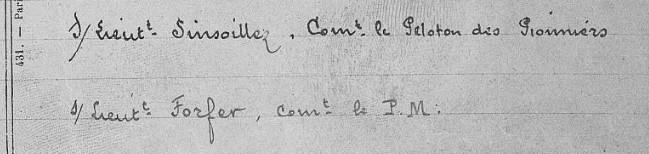 431. — Pari
S/Lieutt. Sinsoillez, Comt. le Peloton des Pionniers
S/Lieutt. Forfer, comt. le P.M.